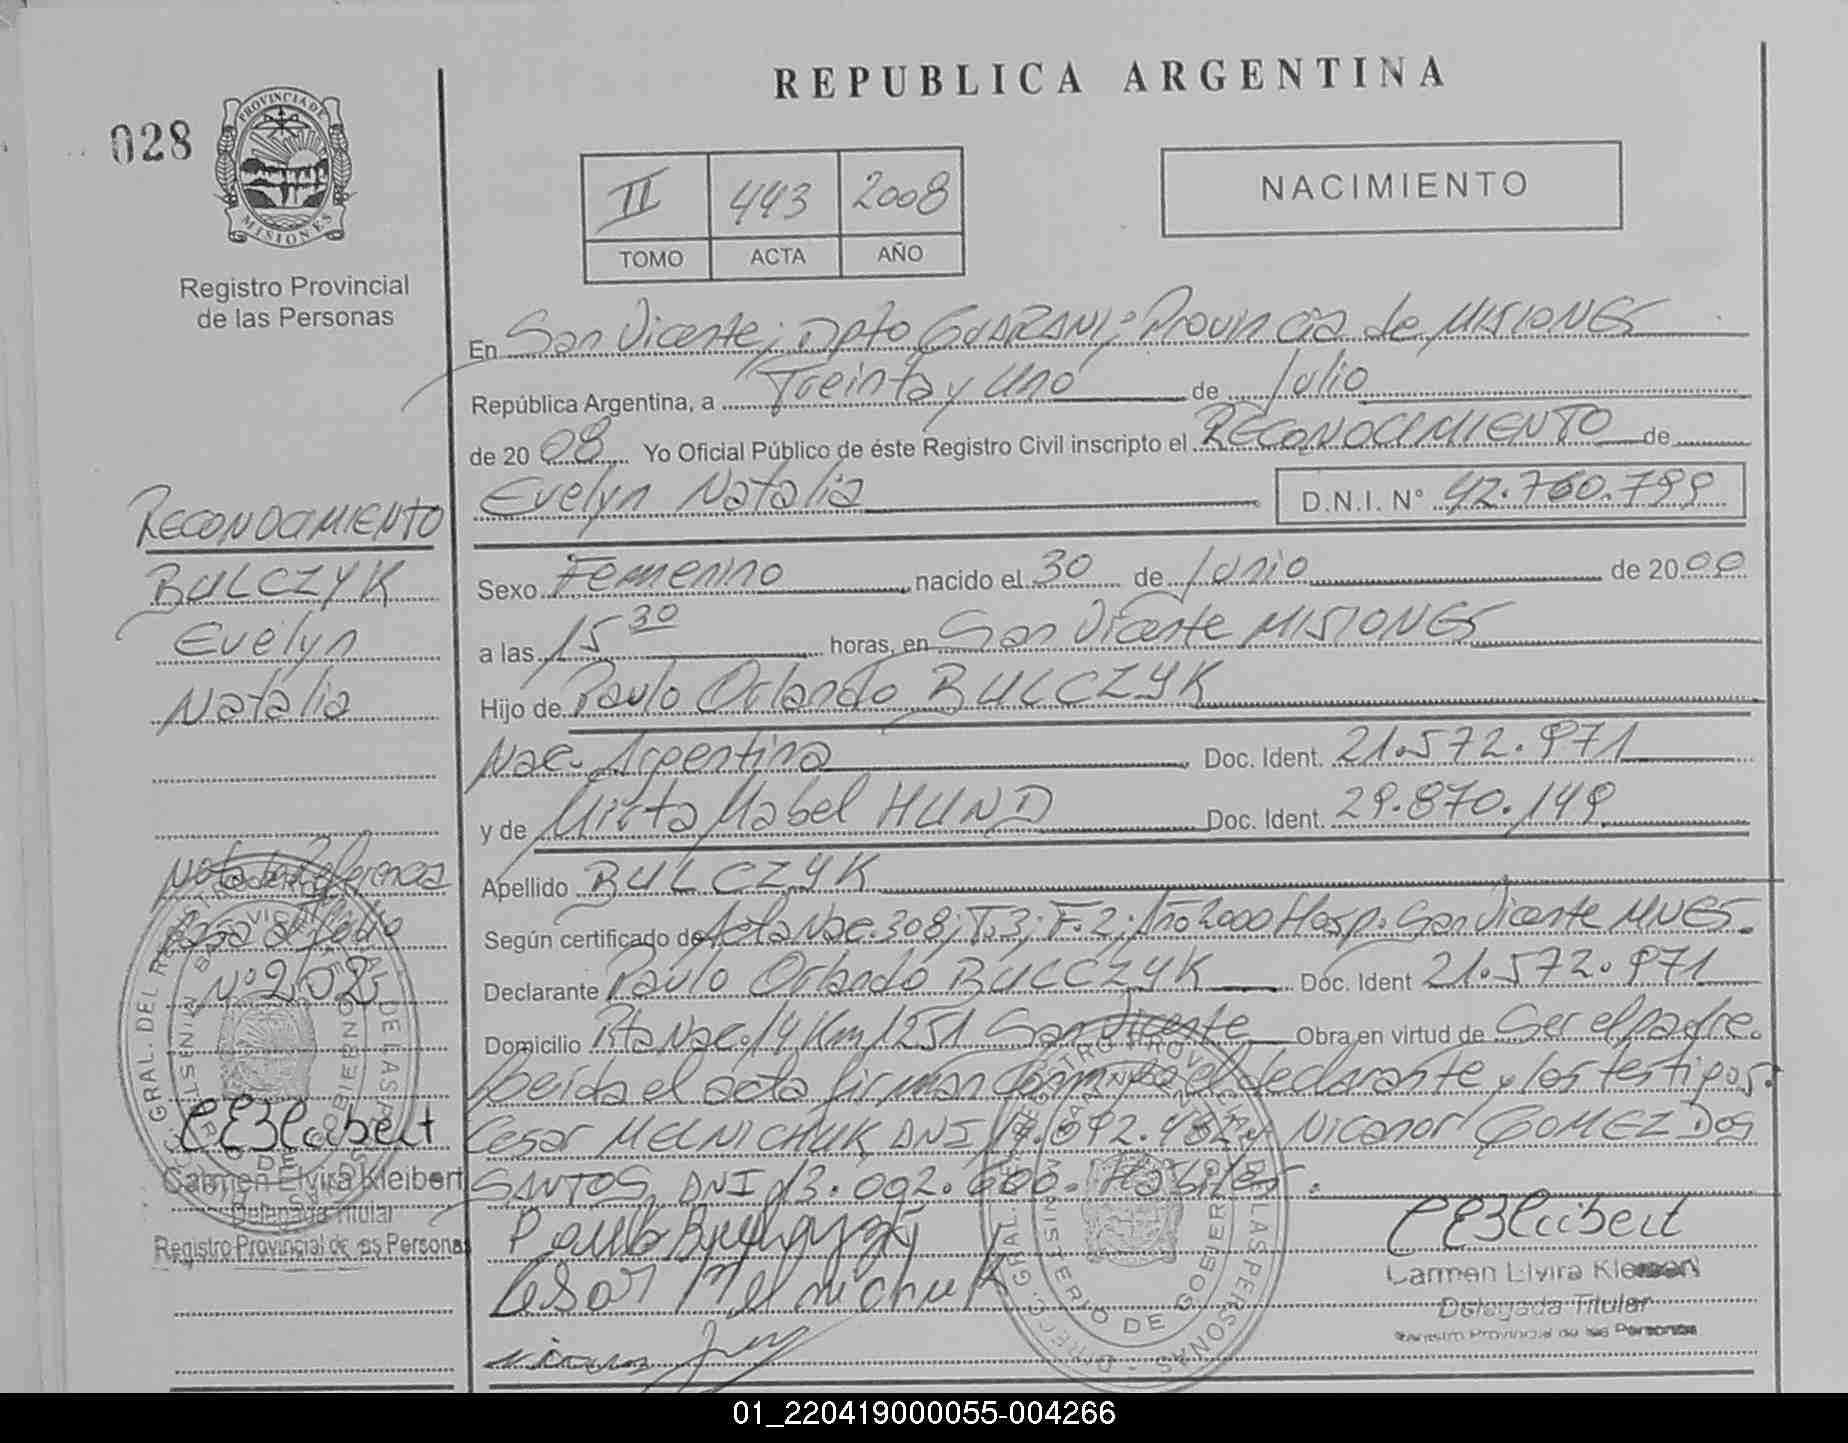 REPUBLICA ARGENTINA
028
PROVINCIA DE
MISIONES
Registro Provincial
de las Personas
II 443 2008
TOMO ACTA AÑO
NACIMIENTO
En San Vicente; Dpto GUARANI; Provincia de MISIONES
República Argentina, a Treinta y Uno de Julio
de 2008 Yo Oficial Público de éste Registro Civil inscripto el RECONOCIMIENTO de
Evelyn Natalia D.N.I. N° 42.760.799
Sexo Femenino nacido el 30 de Junio de 2000
a las 15 30 horas, en San Vicente MISIONES
Hijo de Paulo Orlando BULCZYK
Nac. Argentina Doc. Ident. 21.572.971
y de Mirta Mabel HUND Doc. Ident. 29.870.149
Apellido BULCZYK
Según certificado de Acta Nac. 308; T.3; F.2; Año 2000 Hosp. San Vicente MNES.
Declarante Paulo Orlando BULCZYK Doc. Ident 21.572.971
Domicilio Rta Nac. 14 Km 1251 San Vicente Obra en virtud de Ser el padre.
Leída el acta firman conmigo el declarante y los testigos.
Cesar MELNICHUK DNI y Nicanor GOMEZ DOS
SANTOS, DNI 13.002.603. Hábiles.
Cesar Melnichuk
CEKleibert
Carmen Elvira Kleibert
Delegada Titular
Registro Provincial de las Personas
RECONOCIMIENTO
BULCZYK
Evelyn
Natalia
Nota de Referencia
Pasa al folio
N° 202
CEKleibert
Carmen Elvira Kleibert
Delegada Titular
Registro Provincial de las Personas
01_220419000055-004266